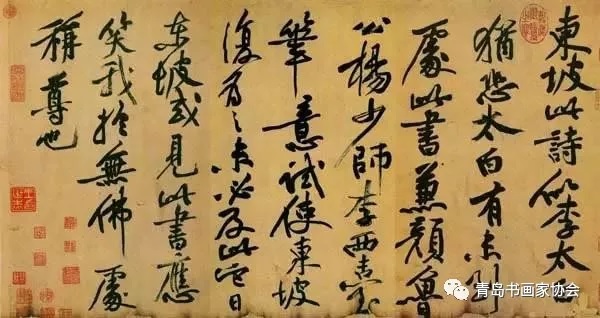 東坡此詩似李太白
猶恐太白有未到
處此書兼顏魯
公楊少師李西臺
筆意試使東坡
復為之未必及此它日
東坡或見此書應
笑我於無佛處
稱尊也
青岛书画家协会